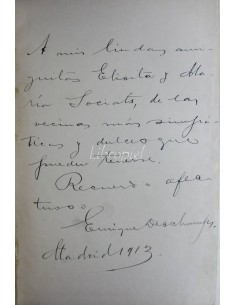 A mis lindas ami-
guitas Elvorta y Ma-
ría Socias, de las
vecinas más simpá-
ticas y dulces que
pueden tenerse.
Recuerdo afec-
tuoso
Enrique Deschamps.
Madrid 1913